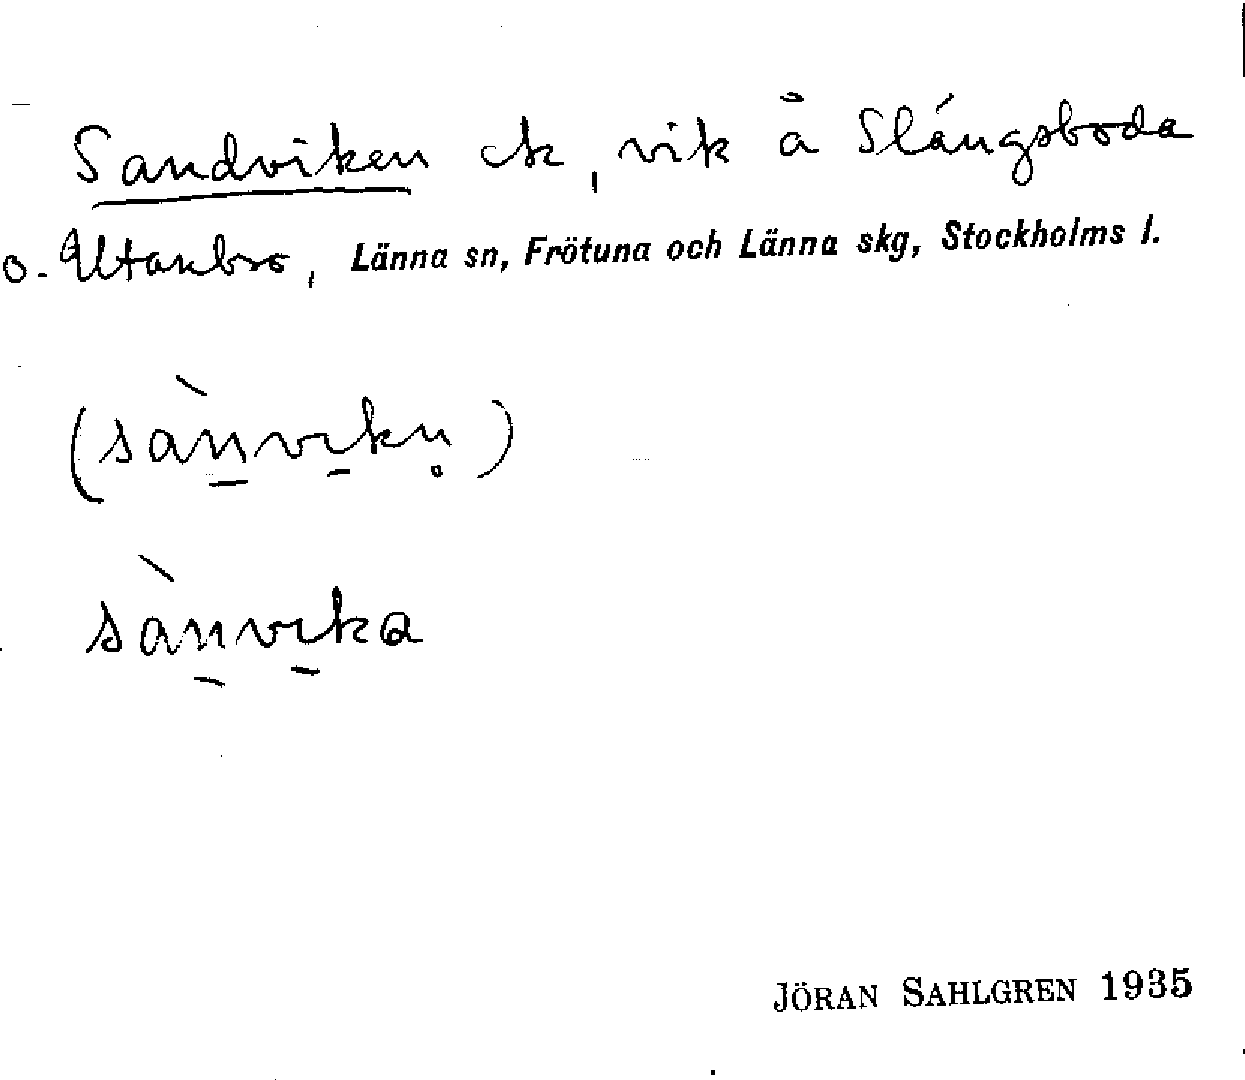 Sandviken ek, vik å Slángsboda
o. Utanbro, Länna sn, Frötuna och Länna skg, Stockholms l.
(sànvikn̥)
sànvika
JÖRAN SAHLGREN 1935